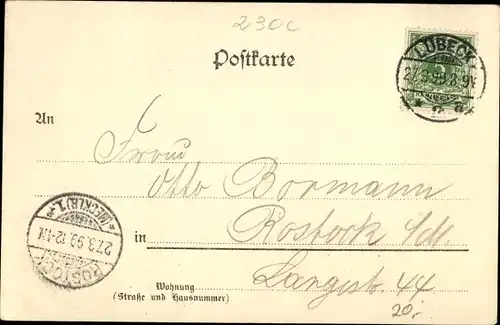 230c
Postkarte
LÜBECK
27.3.99.8-9V.
* 2 a *
An
Frau
Otto Bormann
in Rostock i/M.
Langestr. 44
Wohnung
(Straße und Hausnummer)
20,-
ROSTOCK
27.3.99.12-1N.
* (MECKLB) 1. *